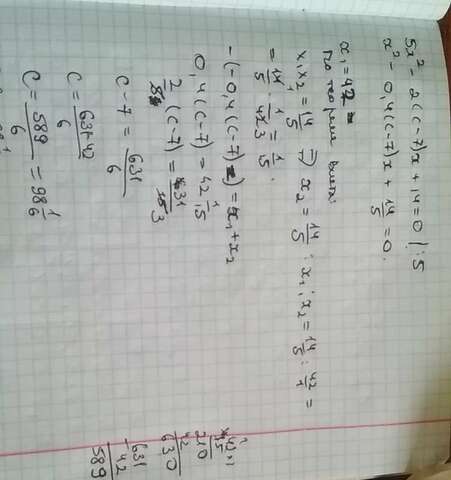 5x² - 2(c-7)x + 14 = 0 | : 5
x² - 0,4(c-7)x + 14/5 = 0.
x₁ = 42
По теореме Виета:
x₁x₂ = 14/5 ⇒ x₂ = 14/5 : x₁; x₂ = 14/5 : 42/1 =
= 14/5 · 1/42 3 = 1/15.
-(-0,4(c-7)) = x₁ + x₂
0,4(c-7) = 42 1/15
2/5 (c-7) = 631/15 3
c-7 = 631/6
c = 631-42/6
c = 589/6 = 98 1/6
42
15
210
42
630
631
-42
589